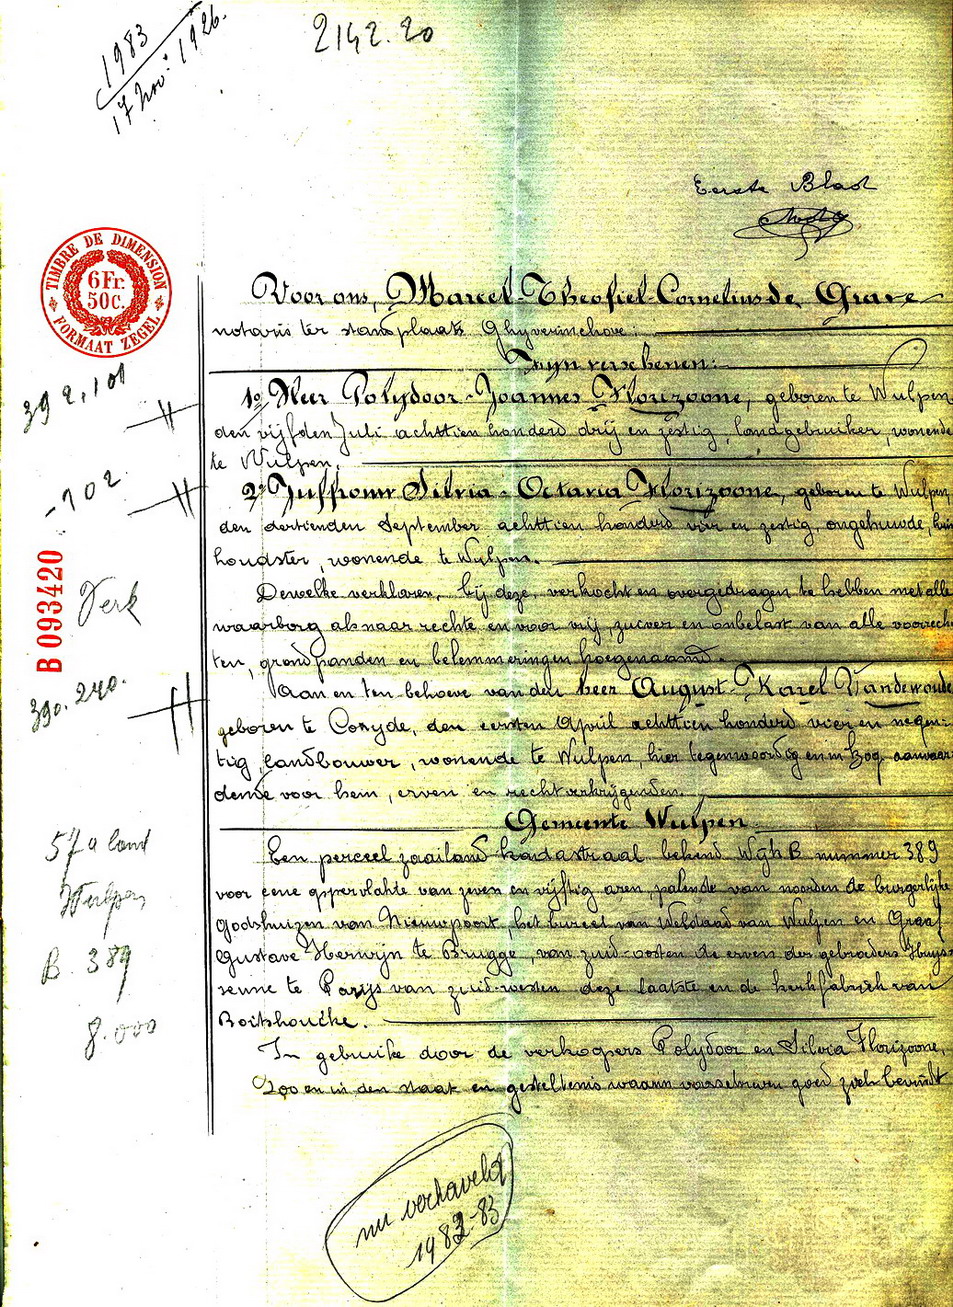 1983
17 nov: 1926.
2142.20
Eerste Blad
TIMBRE DE DIMENSION
6 Fr.
50c.
FORMAAT ZEGEL
Voor ons, Marcel-Theofiel-Cornelius de Grave
notaris ter standplaats Ghyverinchove:
Zijn verschenen:
392.101
1° Heer Polydoor-Joannes Florizoone, geboren te Wulpen
den vijfden Juli achttien honderd drij en zestig, landgebruiker, wonende
te Wulpen,
-102
2° Juffrouw Silvia-Octavia Florizoone, geboren te Wulpen,
den dertienden September achttien honderd vier en zestig, ongehuwde, huis
houdster, wonende te Wulpen.
B 093420
Verk
Dewelke verklaren, bij deze, verkocht en overgedragen te hebben met alle
waarborg als naar rechte en voor vrij, zuiver en onbelast van alle voorrech
ten, grondpanden en belemmeringen hoegenaamd.
390.240.
Aan en ten behoeve van den heer August-Karel Vandewoude
geboren te Coxyde, den eersten April achttien honderd vier en negen-
tig, landbouwer, wonende te Wulpen, hier tegenwoordig en aanvaar
dende voor hem, erven en rechtverkrijgenden.
Gemeente Wulpen
57 a land
Wulpen
B. 389
8.000
Een perceel zaailand kadastraal bekend Wijk B nummer 389
voor eene oppervlakte van zeven en vijftig aren, palende van noorden de burgerlijke
godshuizen van Nieuwpoort, het bureel van Weldaad van Wulpen en Graaf
Gustave Herwijn te Brugge, van zuid-oosten de erven der gebroeders Huys
seune te Parijs van zuid-westen deze laatste en de kerkfabriek van
Boitshoucke.
In gebruike door de verkopers Polydoor en Silvia Florizoone,
Zoo en in den staat en gesteltenis waarin voorschreven goed zich bevindt
nu verkaveld
1982-83